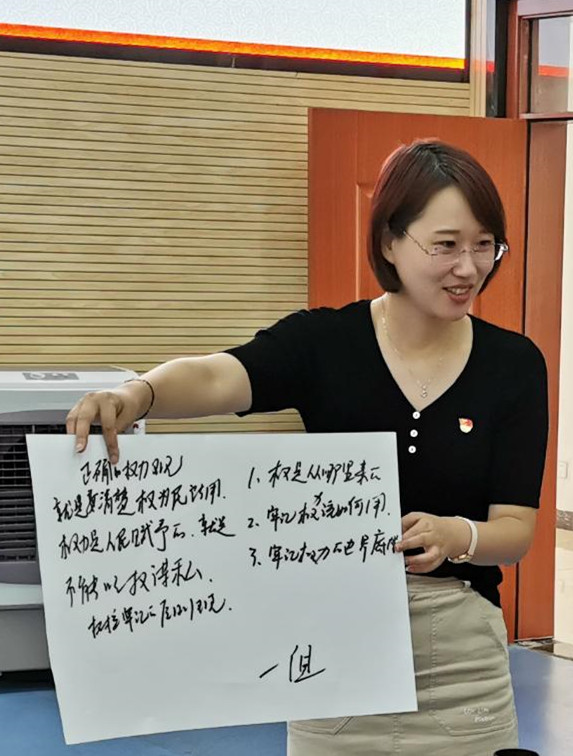 正确的权力观
就是要清楚权为民所用.
权力是人民赋予的.就是
不能以权谋私.
1. 权是从哪里来的
2. 牢记权力该如何用.
3. 牢记权力的
一组